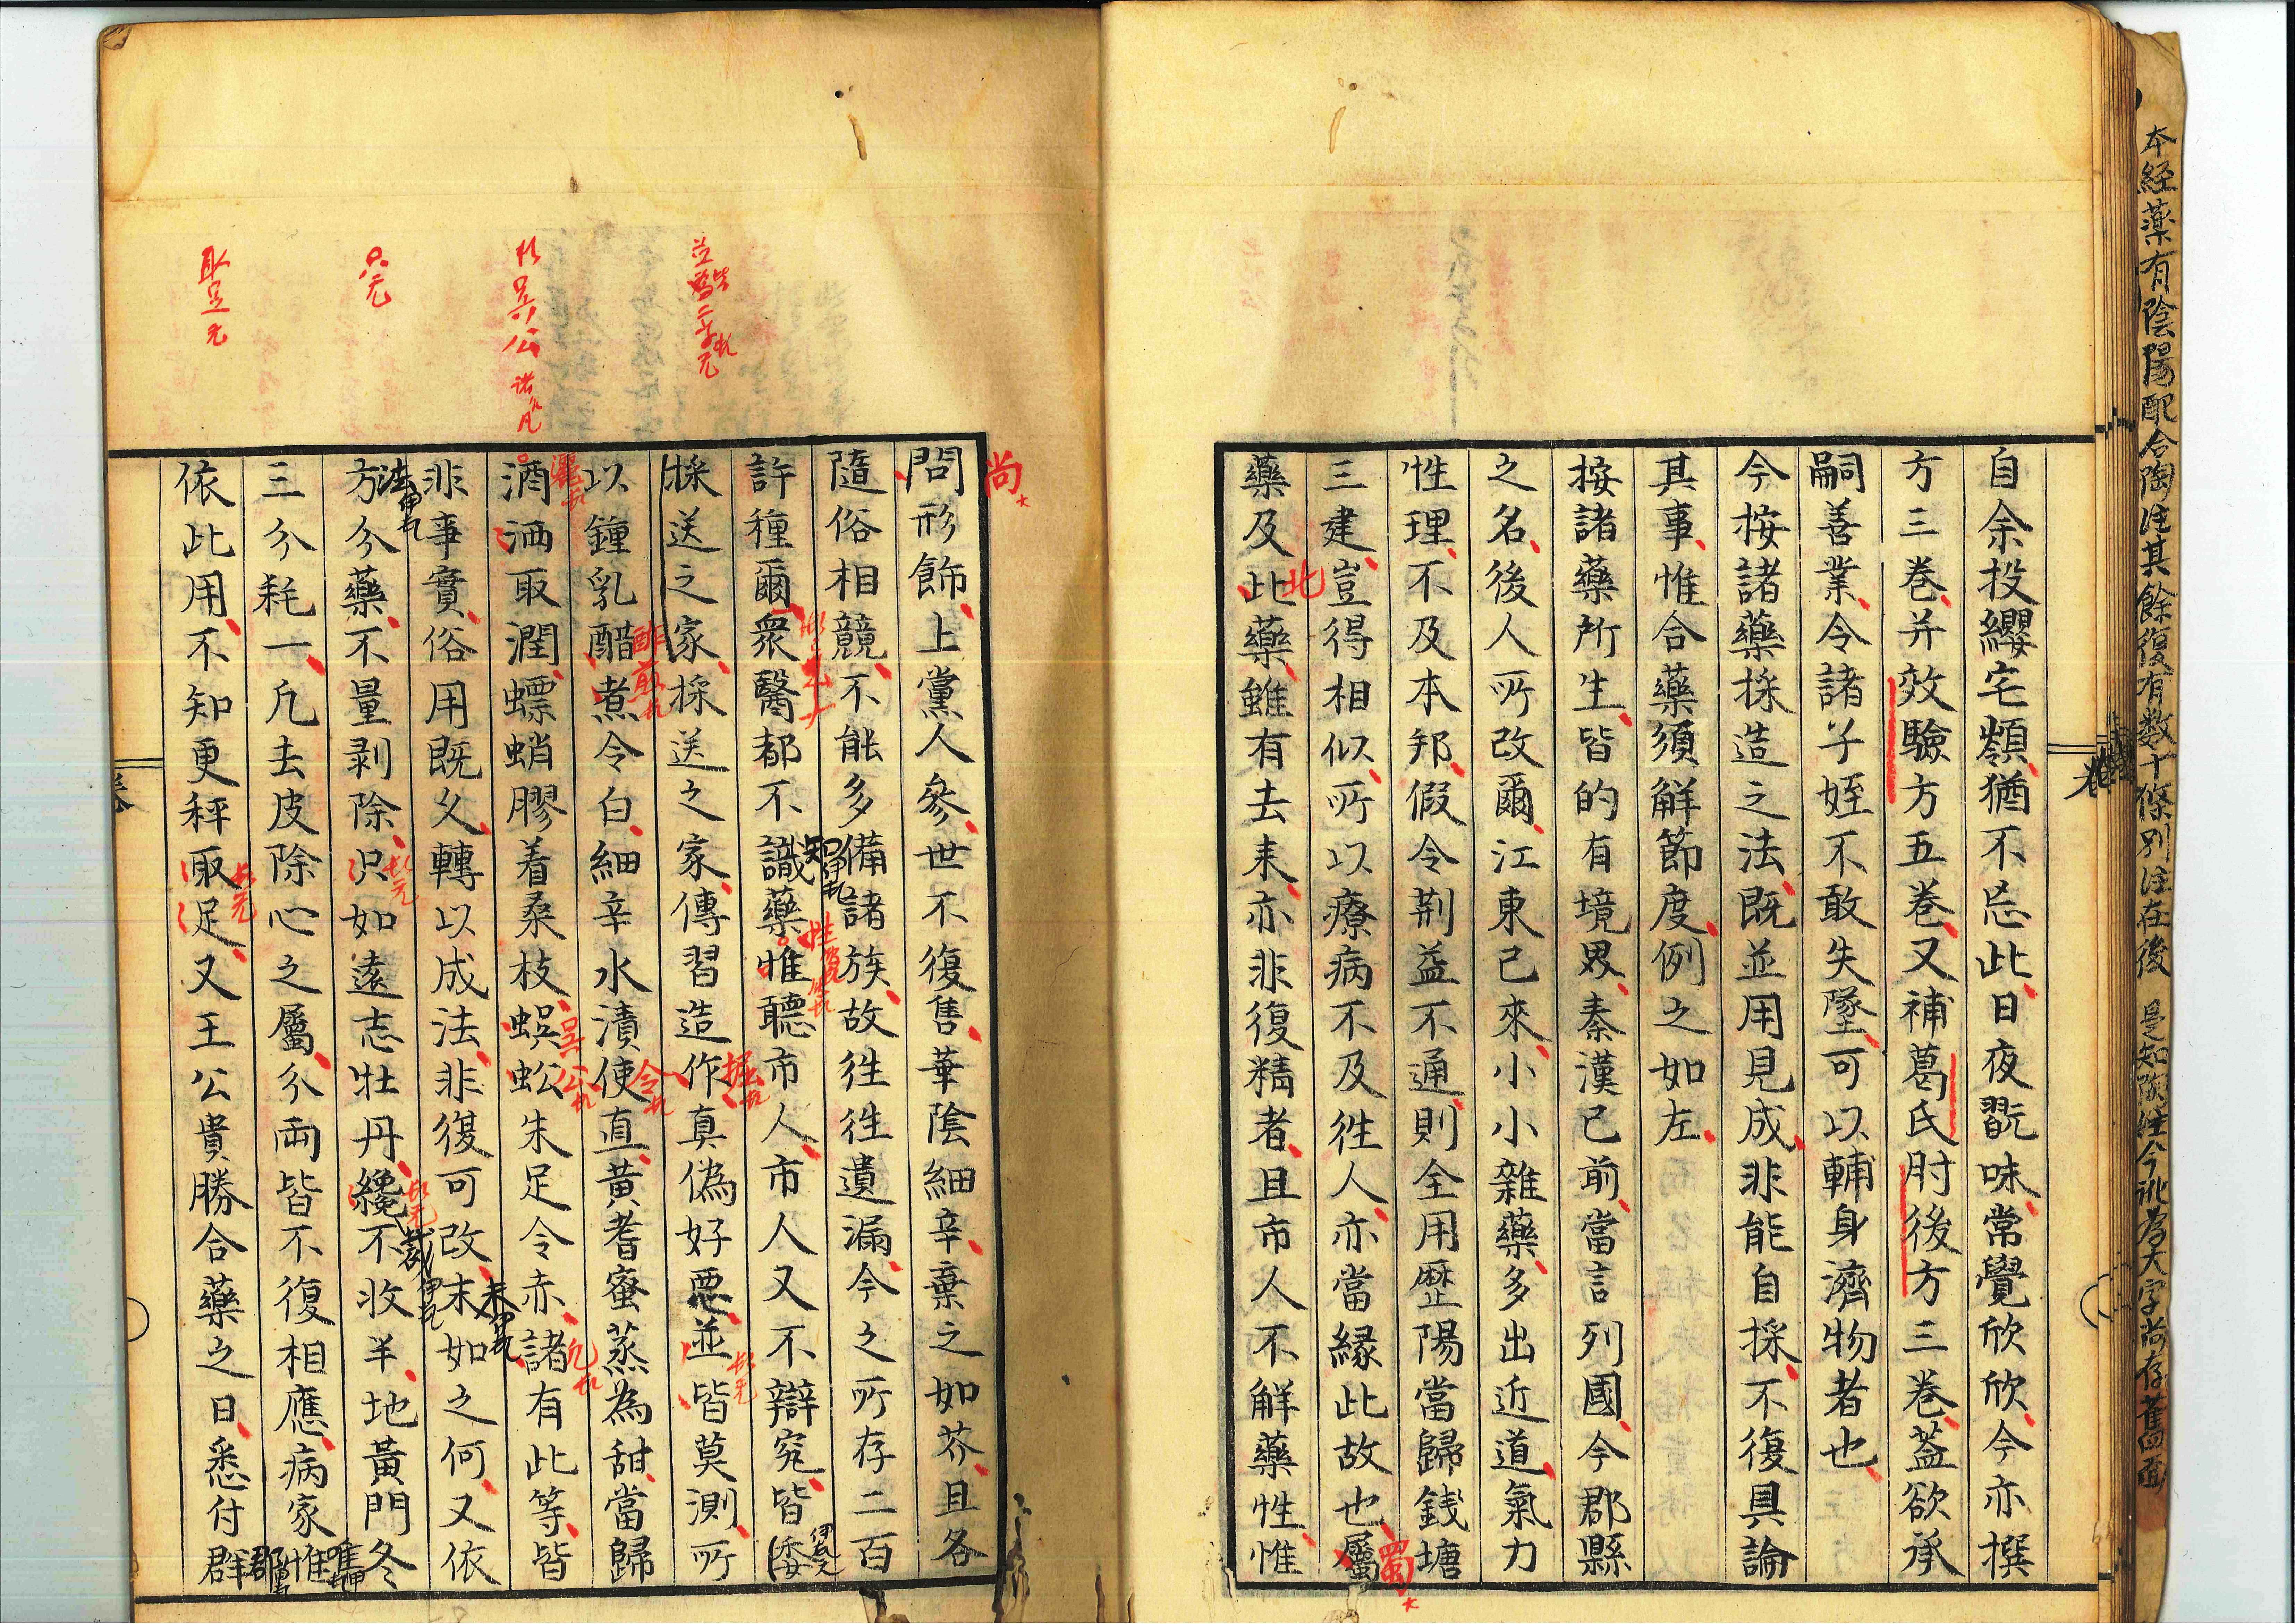 本経薬有陰陽配合陶注其餘復有数十條別注在後 是知陶注今訛為大字尚存舊面
自余投纓宅嶺猶不忘此日夜翫味常覺欣欣今亦撰
方三巻并效驗方五巻又補葛氏肘後方三巻蓋欲承
嗣善業令諸子姪不敢失墜可以輔身濟物者也
今按諸藥採造之法既並用見成非能自採不復具論
其事惟合藥須解節度例之如左
按諸藥所生皆的有境界秦漢已前當言列國今郡縣
之名後人所改爾江東已來小小雜藥多出近道氣力
性理不及本邦假令荊益不通則全用歷陽當歸銭塘
三建豈得相似所以療病不及徃人亦當緣此故也屬
蜀
藥及此藥雖有去來亦非復精者且市人不解藥性惟
北
尚
問形飾上黨人參世不復售華陰細辛棄之如芥且各
隨俗相競不能多備諸族故徃徃遺漏今之所存二百
許種爾衆醫都不識藥惟聽市人市人又不辯究皆委
知
採送之家採送之家傳習造作真偽好惡並皆莫測所
掘
並皆二字元
以鐘乳醋煮令白細辛水漬使直黃耆蜜蒸為甜當歸
酢煎
令
酒洒取潤螵蛸膠着桑枝蜈蚣朱足令赤諸有此等皆
灑
吳公
凡
非事實俗用既久轉以成法非復可改末如之何又依
未
方分藥不量剥除只如遠志牡丹纔不收半地黃門冬
法
裁
只元
三分耗一凡去皮除心之屬分兩皆不復相應病家惟
唯
依此用不知更秤取足又王公貴勝合藥之日悉付群
郡
取足元